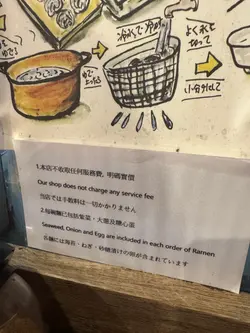 冷水で冷やし
よく水を
切って
ゆで
上ったら
小分けして
1.本店不收取任何服務費, 明碼實價
Our shop does not charge any service fee
当店では手数料は一切かかりません
2.每碗麵已包括紫菜、大蔥及糖心蛋
Seaweed, Onion and Egg are included in each order of Ramen
各麺には海苔・ねぎ・砂糖漬けの卵が含まれています